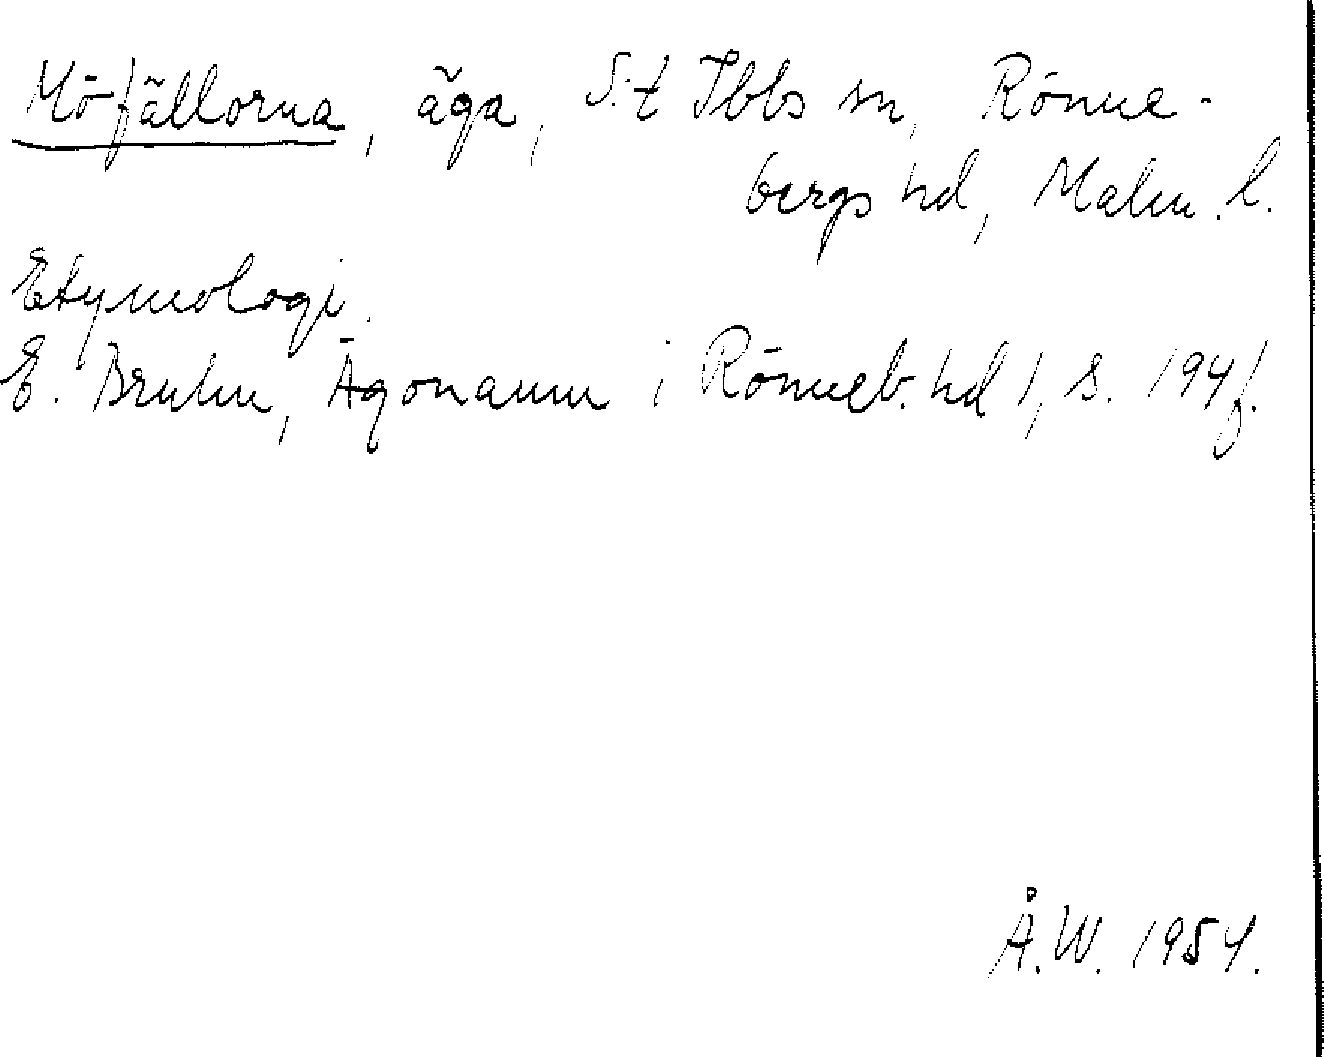 Möfällorna, äga, S:t Ibbs sn, Rönne-
bergs hd, Malm. l.
Etymologi.
E. Bruhn, Ägonamn i Rönneb. hd 1, s. 194f.
Å.W. 1954.